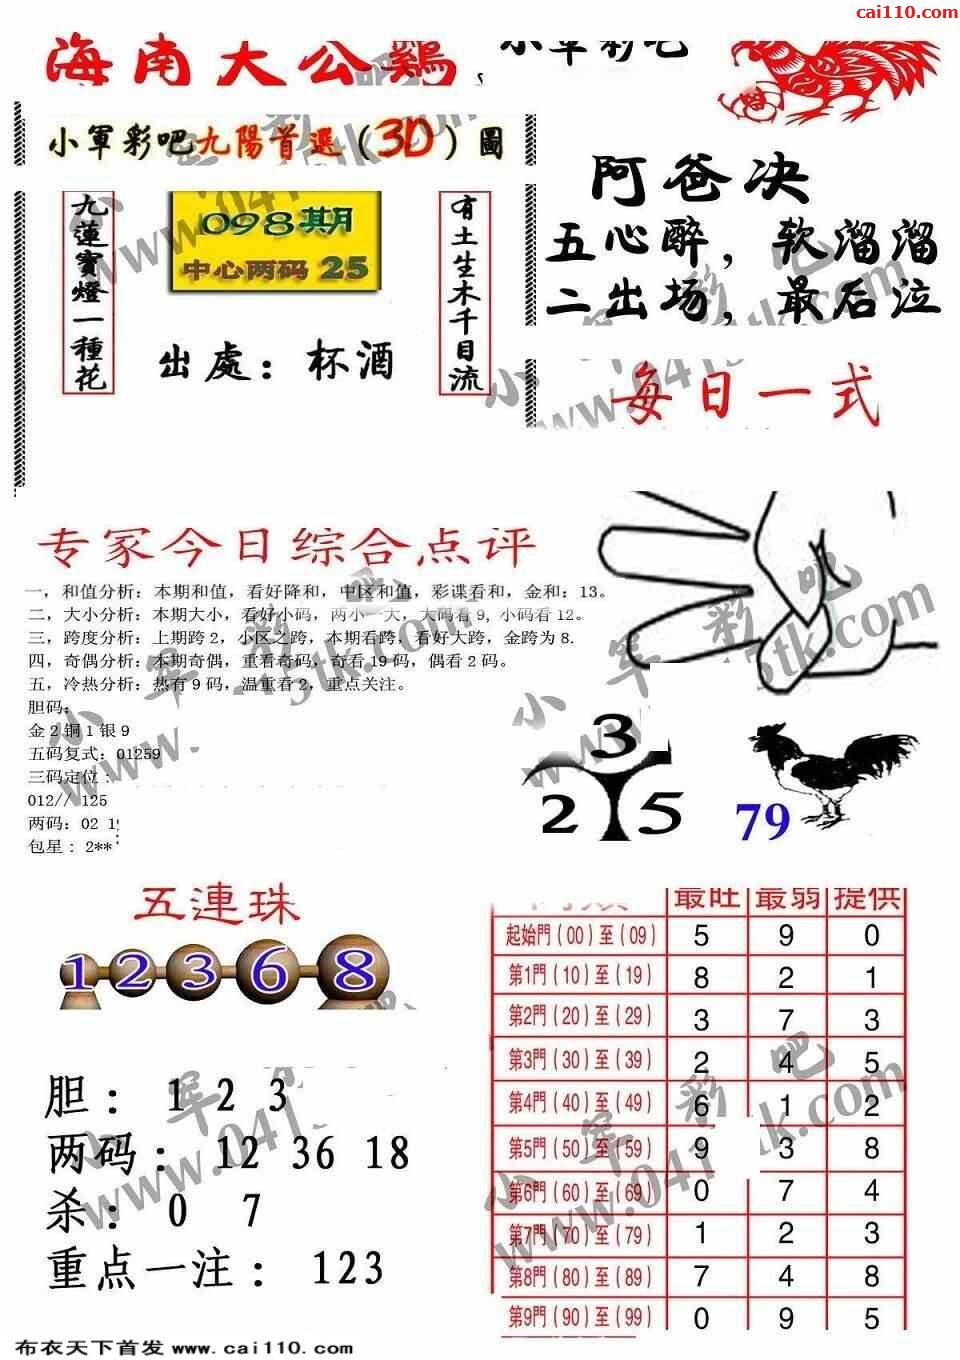 cai110.com
海南大公鷄
小軍彩吧
小軍彩吧九陽首選(3D)圖
九蓮寳燈一種花
098期
中心两码 25
有土生木千目流
出處：杯酒
阿爸决
五心醉，软溜溜
二出场，最后泣
每日一式
专家今日综合点评
一，和值分析：本期和值，看好降和，中区和值，彩谍看和，金和：13。
二，大小分析：本期大小，看好小码，两小一大，大码看 9, 小码看 12。
三，跨度分析：上期跨 2，小区之跨，本期看跨，看好大跨，金跨为 8.
四，奇偶分析：本期奇偶，重看奇码，奇看 19 码，偶看 2 码。
五，冷热分析：热有 9 码，温重看 2，重点关注。
胆码：
金 2 铜 1 银 9
五码复式：01259
三码定位：
012// 125
两码：02 19
包星：2**
3
2 5
79
五連珠
1 2 3 6 8
胆： 1 2 3
两码： 12 36 18
杀： 0 7
重点一注： 123
最旺 最弱 提供
起始門(00)至(09) 5 9 0
第1門(10)至(19) 8 2 1
第2門(20)至(29) 3 7 3
第3門(30)至(39) 2 4 5
第4門(40)至(49) 6 1 2
第5門(50)至(59) 9 3 8
第6門(60)至(69) 0 7 4
第7門(70)至(79) 1 2 3
第8門(80)至(89) 7 4 8
第9門(90)至(99) 0 9 5
布衣天下首发 www.cai110.com